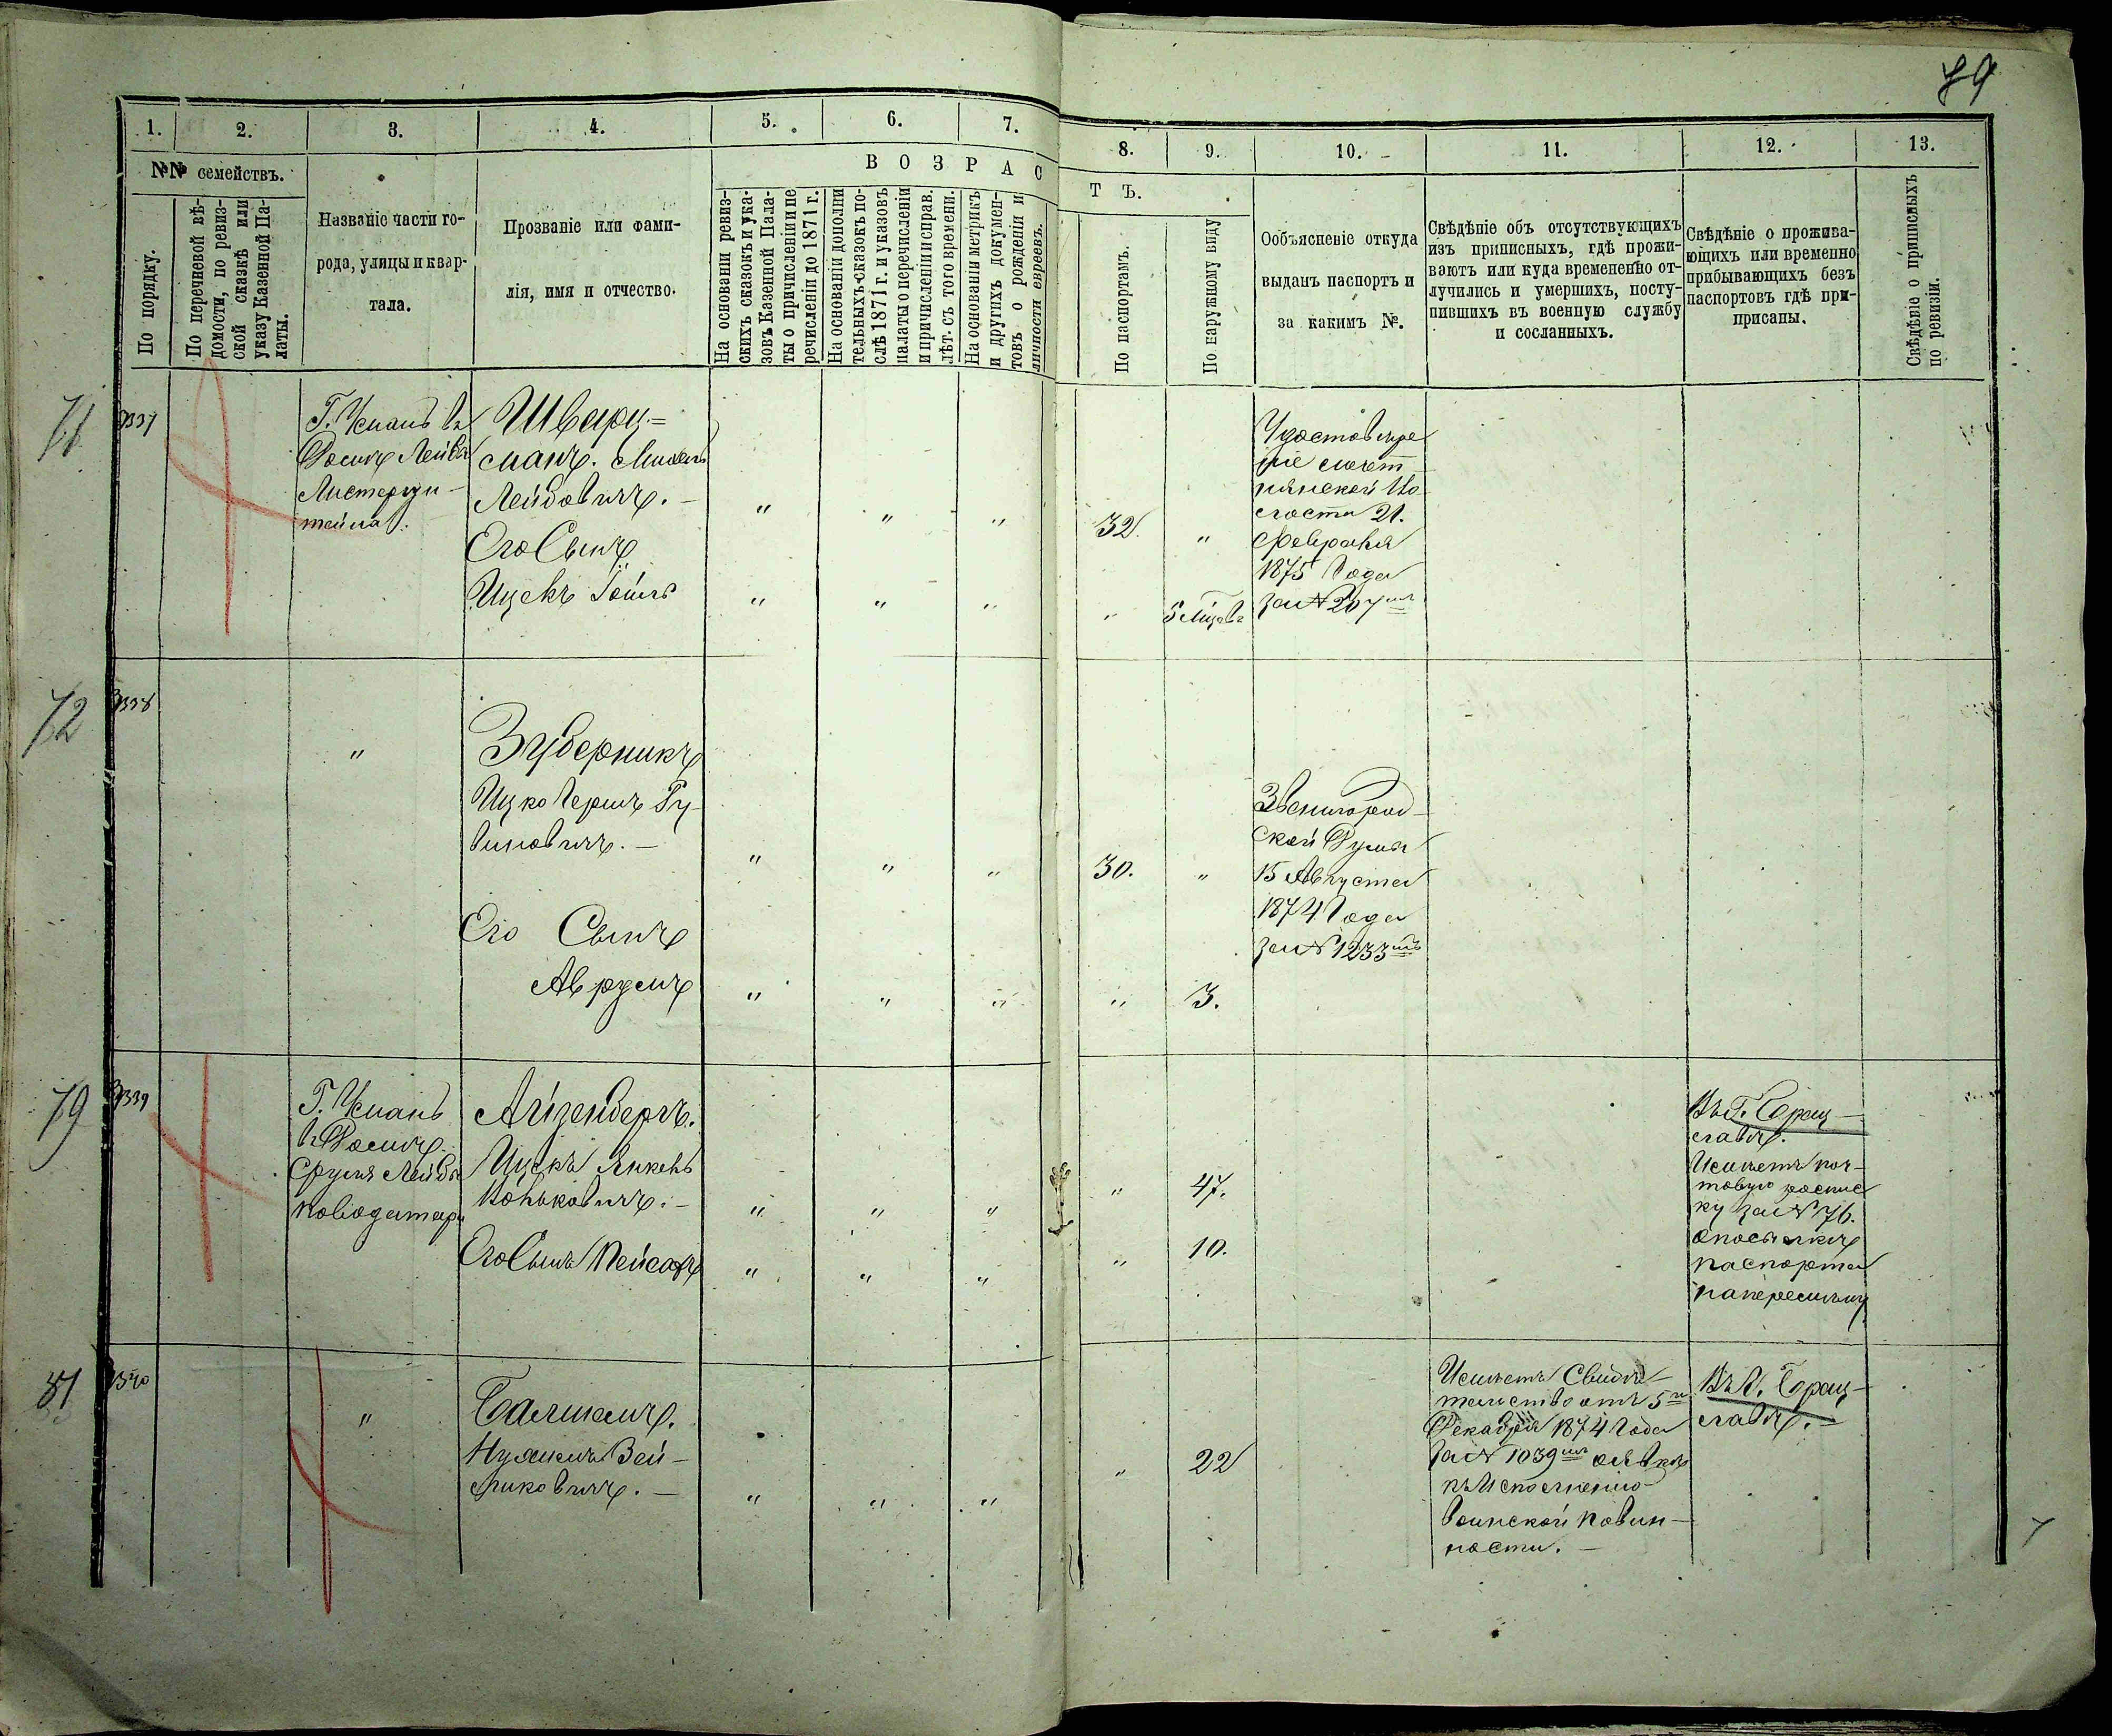 79
1.
2.
3.
4.
5.
6.
7.
8.
9.
10.
11.
12.
13.
№№ семействъ.
ВОЗРАС
ТЪ.
По порядку.
По перечневой вѣ-
домости, по ревиз-
ской сказкѣ или
указу Казенной Па-
латы.
Названіе части го-
рода, улицы и квар-
тала.
Прозваніе или фами-
лія, имя и отчество.
На основаніи ревиз-
скихъ сказокъ и ука-
зовъ Казенной Пала-
ты о причисленіи и пе
речисленіи до 1871 г.
На основаніи дополни
тельныхъ-сказокъ по-
слѣ 1871 г. и указовъ
палаты о перечисленіи
и причисленіи и справ.
лѣт. съ того времени.
На основаніи метрикъ
и другихъ докумен-
товъ о рожденіи и
личности евреевъ.
По паспортамъ.
По наружному виду
Ообъясненіе откуда
выданъ паспортъ и
за какимъ №.
Свѣдѣніе объ отсутствующихъ
изъ приписныхъ, гдѣ прожи-
ваютъ или куда временно от-
лучились и умершихъ, посту-
пившихъ въ военную службу
и сосланныхъ.
Свѣдѣніе о прожива-
ющихъ или временно
прибывающихъ безъ
паспортовъ гдѣ при-
писаны.
Свѣдѣніе о приписныхъ
по ревизіи.
71
3337
Г. Умань въ
Домѣ Лейбы
Шварц=
манъ.
Лейбовичъ. –
Его Сынъ
Ицекъ Іойль
" " " 32. "
" " " " 5 Мѣсяцевъ
Удостовѣре
ніе
Во
лости 21.
Февраля
1875 Года
за № 207мъ
72
3338
"
Зуберникъ
Ицко Гершъ Ру-
виновичъ. –
" " " 30. "
Его Сынъ
Аврумъ
" " " " 3.
Звенигород-
ской Думы
15 Августа
1874 Года
за № 1233мъ
79
3339
Г. Умань
в Домѣ
Сруля Лейбы
Айзенбергъ.
Ицекъ Янкель
Воньковичъ. –
" " " " 47.
Его Сынъ Пейсахъ
" " " " 10.
Въ Г. Брац-
лавѣ.
Имѣетъ поч-
товую роспис
ку за № 176.
о посылкѣ
паспорта
на перемѣну
81
3340
"
Балшемъ.
Нухимъ Зей-
" " " " 22
Имѣетъ Свидѣ-
тельство отъ 5го
Декабря 1874 Года
за № 1039мъ о явкѣ
къ Исполненію
воинской повин-
ности. –
Въ Г. Брац-
лавѣ. –